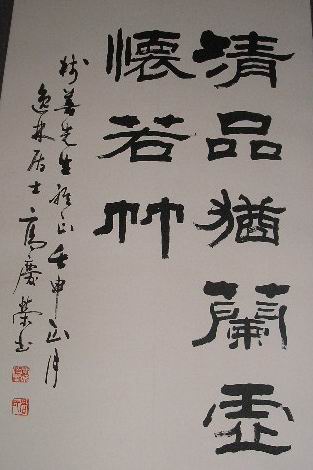 清品猶蘭虛
懷若竹
善先生雅正壬申正月
逸林居士高慶榮书